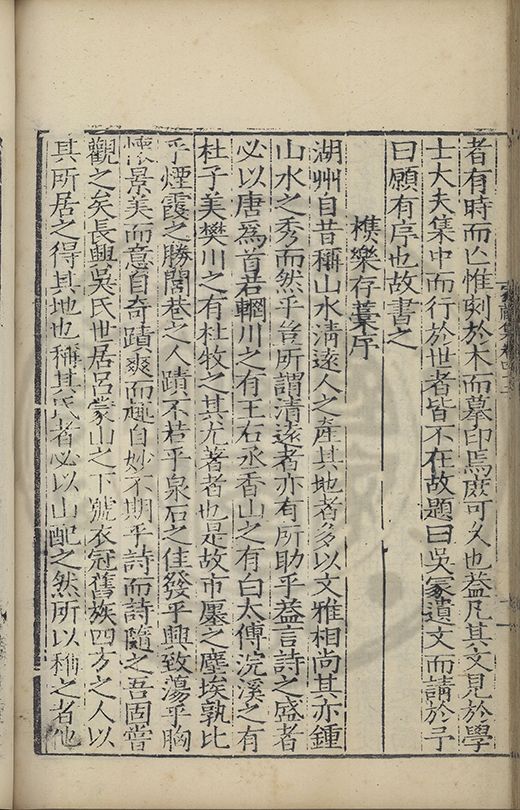 者有時而亡惟刻於木而摹印焉庶可久也益凡其文見於學
士大夫集中而行於世者皆不在故題曰吳冡遺文而請於予
曰願有序也故書之
樵樂存藁序
湖州自昔稱山水清遠人之產其地者多以文雅相尚其亦鍾
山水之秀而然乎答所謂清遠者亦有所助乎葢言詩之盛者
必以唐為首若輞川之有王右丞香山之有白太傅浣溪之有
杜子美樊川之有杜牧之其尤著者也是故市廛之塵埃孰比
乎煙霞之勝閭巷之人蹟不若乎泉石之佳發乎興致蕩乎胸
懷景美而意自奇蹟爽而趣自妙不期乎詩而詩隨之吾固嘗
觀之矣長興吳氏世居呂蒙山之下號衣冠舊族四方之人以
其所居之得其地也稱其氏者必以山配之然所以稱之者他